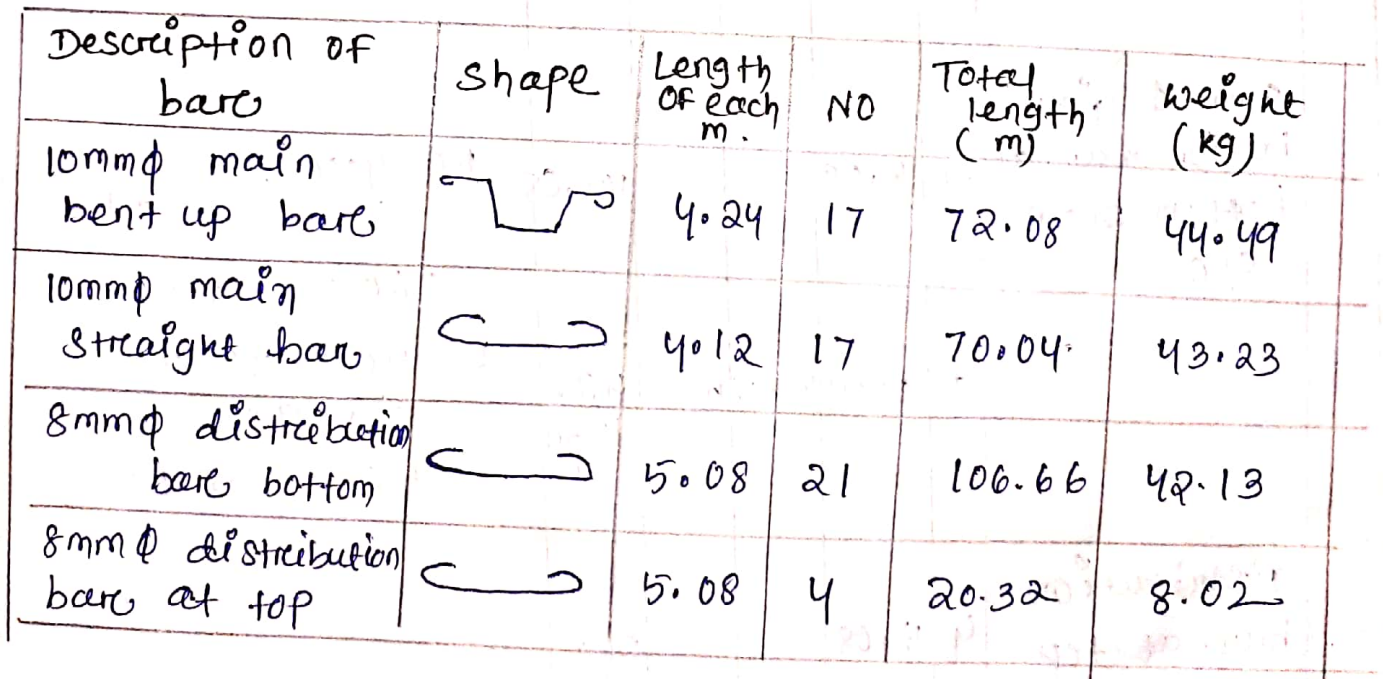 Description of bar Shape Length of each m. NO Total length (m) weight (kg)
10mmϕ main bent up bar 4.24 17 72.08 44.49
10mmϕ main straight bar 4.12 17 70.04 43.23
8mmϕ distribution bar bottom 5.08 21 106.66 42.13
8mmϕ distribution bar at top 5.08 4 20.32 8.02